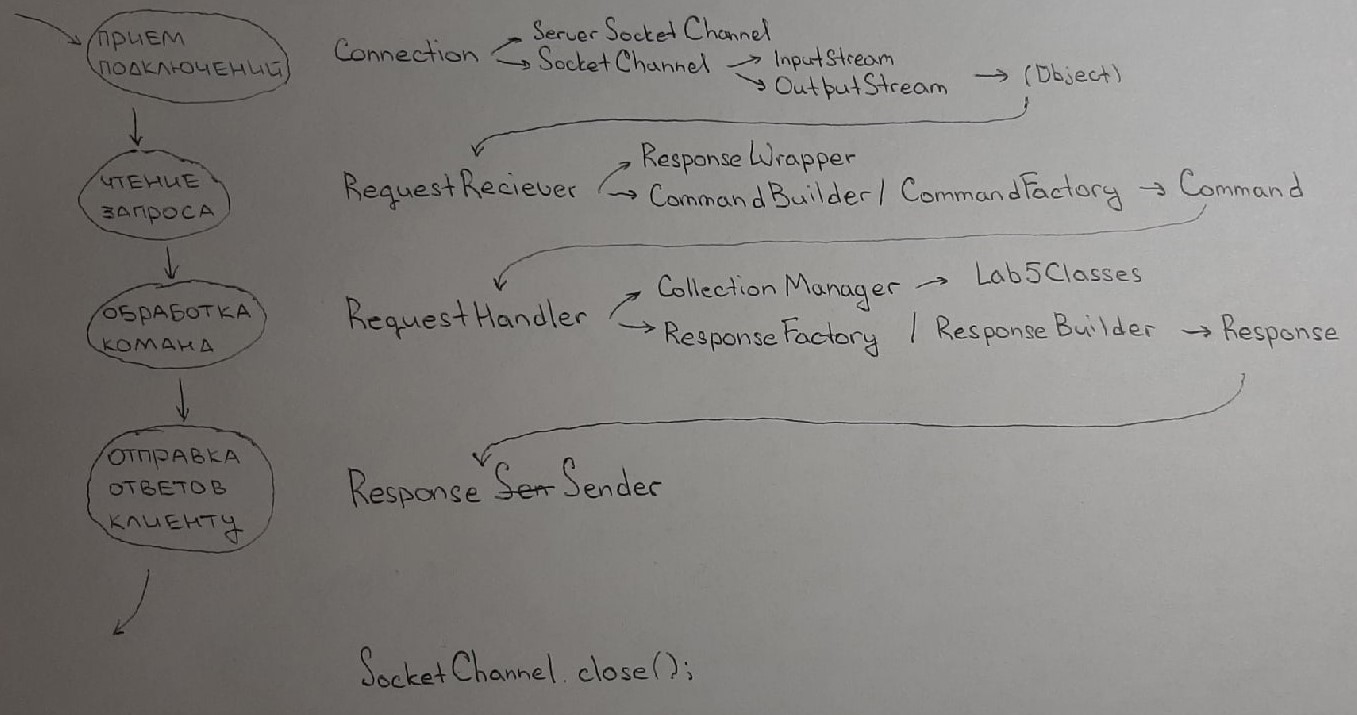 ПРИЕМ
ПОДКЛЮЧЕНИЙ
Connection
ServerSocketChannel
SocketChannel → InputStream
OutputStream → (Object)
ЧТЕНИЕ
ЗАПРОСА
RequestReciever
ResponseWrapper
CommandBuilder / CommandFactory → Command
ОБРАБОТКА
КОМАНД
RequestHandler
CollectionManager → Lab5Classes
ResponseFactory / ResponseBuilder → Response
ОТПРАВКА
ОТВЕТОВ
КЛИЕНТУ
Response Sen Sender
SocketChannel.close();